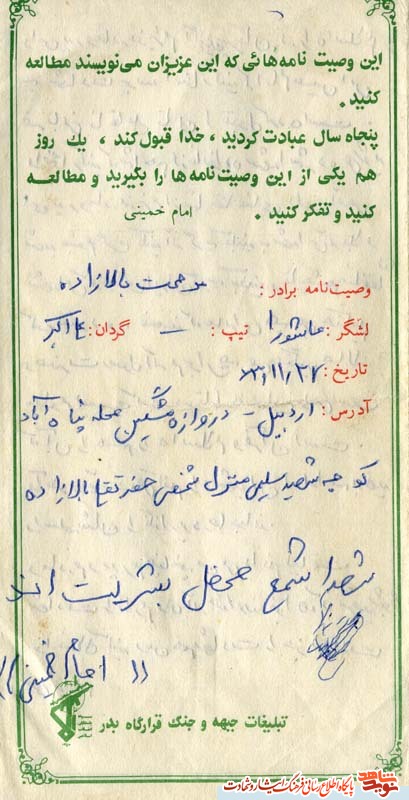 این وصیت نامه‌هائی که این عزیزان می‌نویسند مطالعه
کنید.
پنجاه سال عبادت کردید، خدا قبول کند، یك روز
هم یکی از این وصیت‌نامه‌ها را بگیرید و مطالعه
کنید و تفکر کنید. امام خمینی
وصیت‌نامه برادر: بالازاده
لشگر: عاشورا تیپ: — گردان: اکبر
تاریخ: ۶۳/۱۱/۲۲
آدرس: اردبیل – دروازه مشگین محله پناه آباد
کوچه شهید سلیمی منزل شخصی بالازاده
شهدا شمع محفل بشریت اند
(( امام خمینی ))
تبلیغات جبهه و جنگ قرارگاه بدر
نوید شاهد
پایگاه اطلاع رسانی فرهنگ ایثار و شهادت